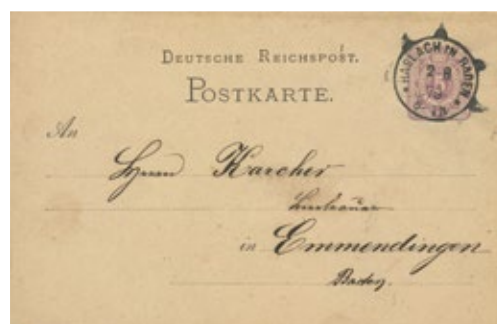 DEUTSCHE REICHSPOST.
POSTKARTE.
HASLACH IN BADEN
2 8
79
An
Herrn Karcher
in Emmendingen
Baden.